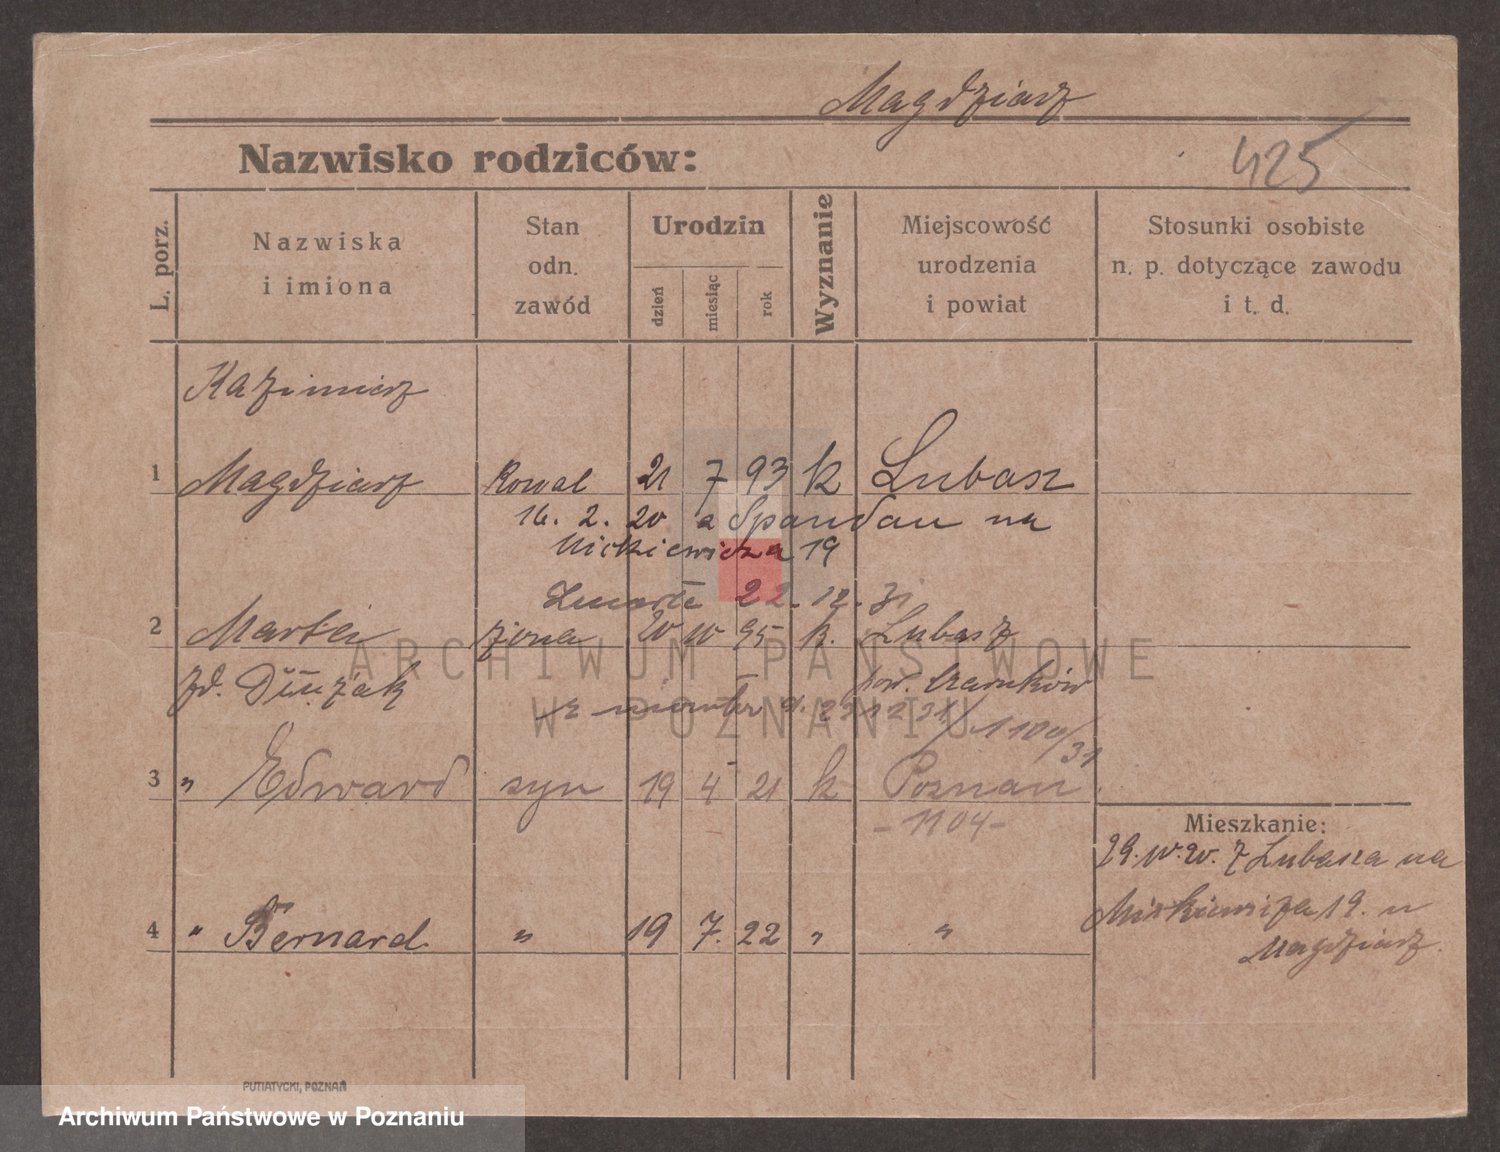 Magdziarz
Nazwisko rodziców:
425
L. porz.
Nazwiska
i imiona
Stan
odn.
zawód
Urodzin
dzień
miesiąc
rok
Wyznanie
Miejscowość
urodzenia
i powiat
Stosunki osobiste
n. p. dotyczące zawodu
i t. d.
Kazimierz
1 Magdziarz Kowal 21 7 93 k Lubasz
16. 2. 20 z Spandau na
Mickiewicza 19
Zmarła 22. 12. 31
2 Marta żona 20 10 95 k. Lubasz
zd. pow. Czarnków
1100/31
3 " Edward syn 19 4 21 k Poznań
-1104-
Mieszkanie:
29. 10. 20. z Lubasza na
Mickiewicza 19. u
Magdziarz.
4 " Bernard " 19 7. 22 " "
PUTIATYCKI, POZNAŃ
ARCHIWUM PAŃSTWOWE
W POZNANIU
Archiwum Państwowe w Poznaniu